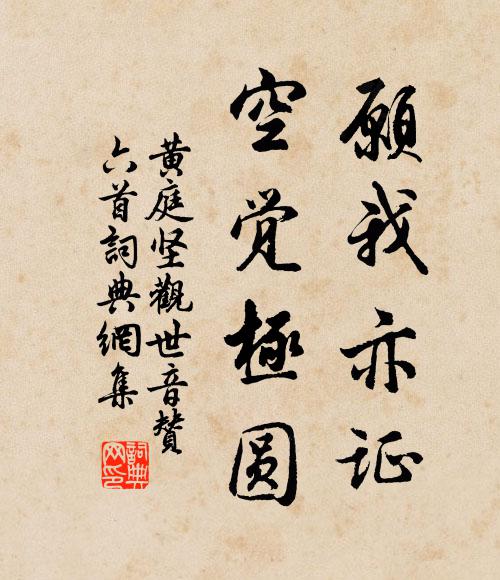 願我亦证
空觉極圆
黄庭坚觀世音赞
六首詞典網集
詞典网印